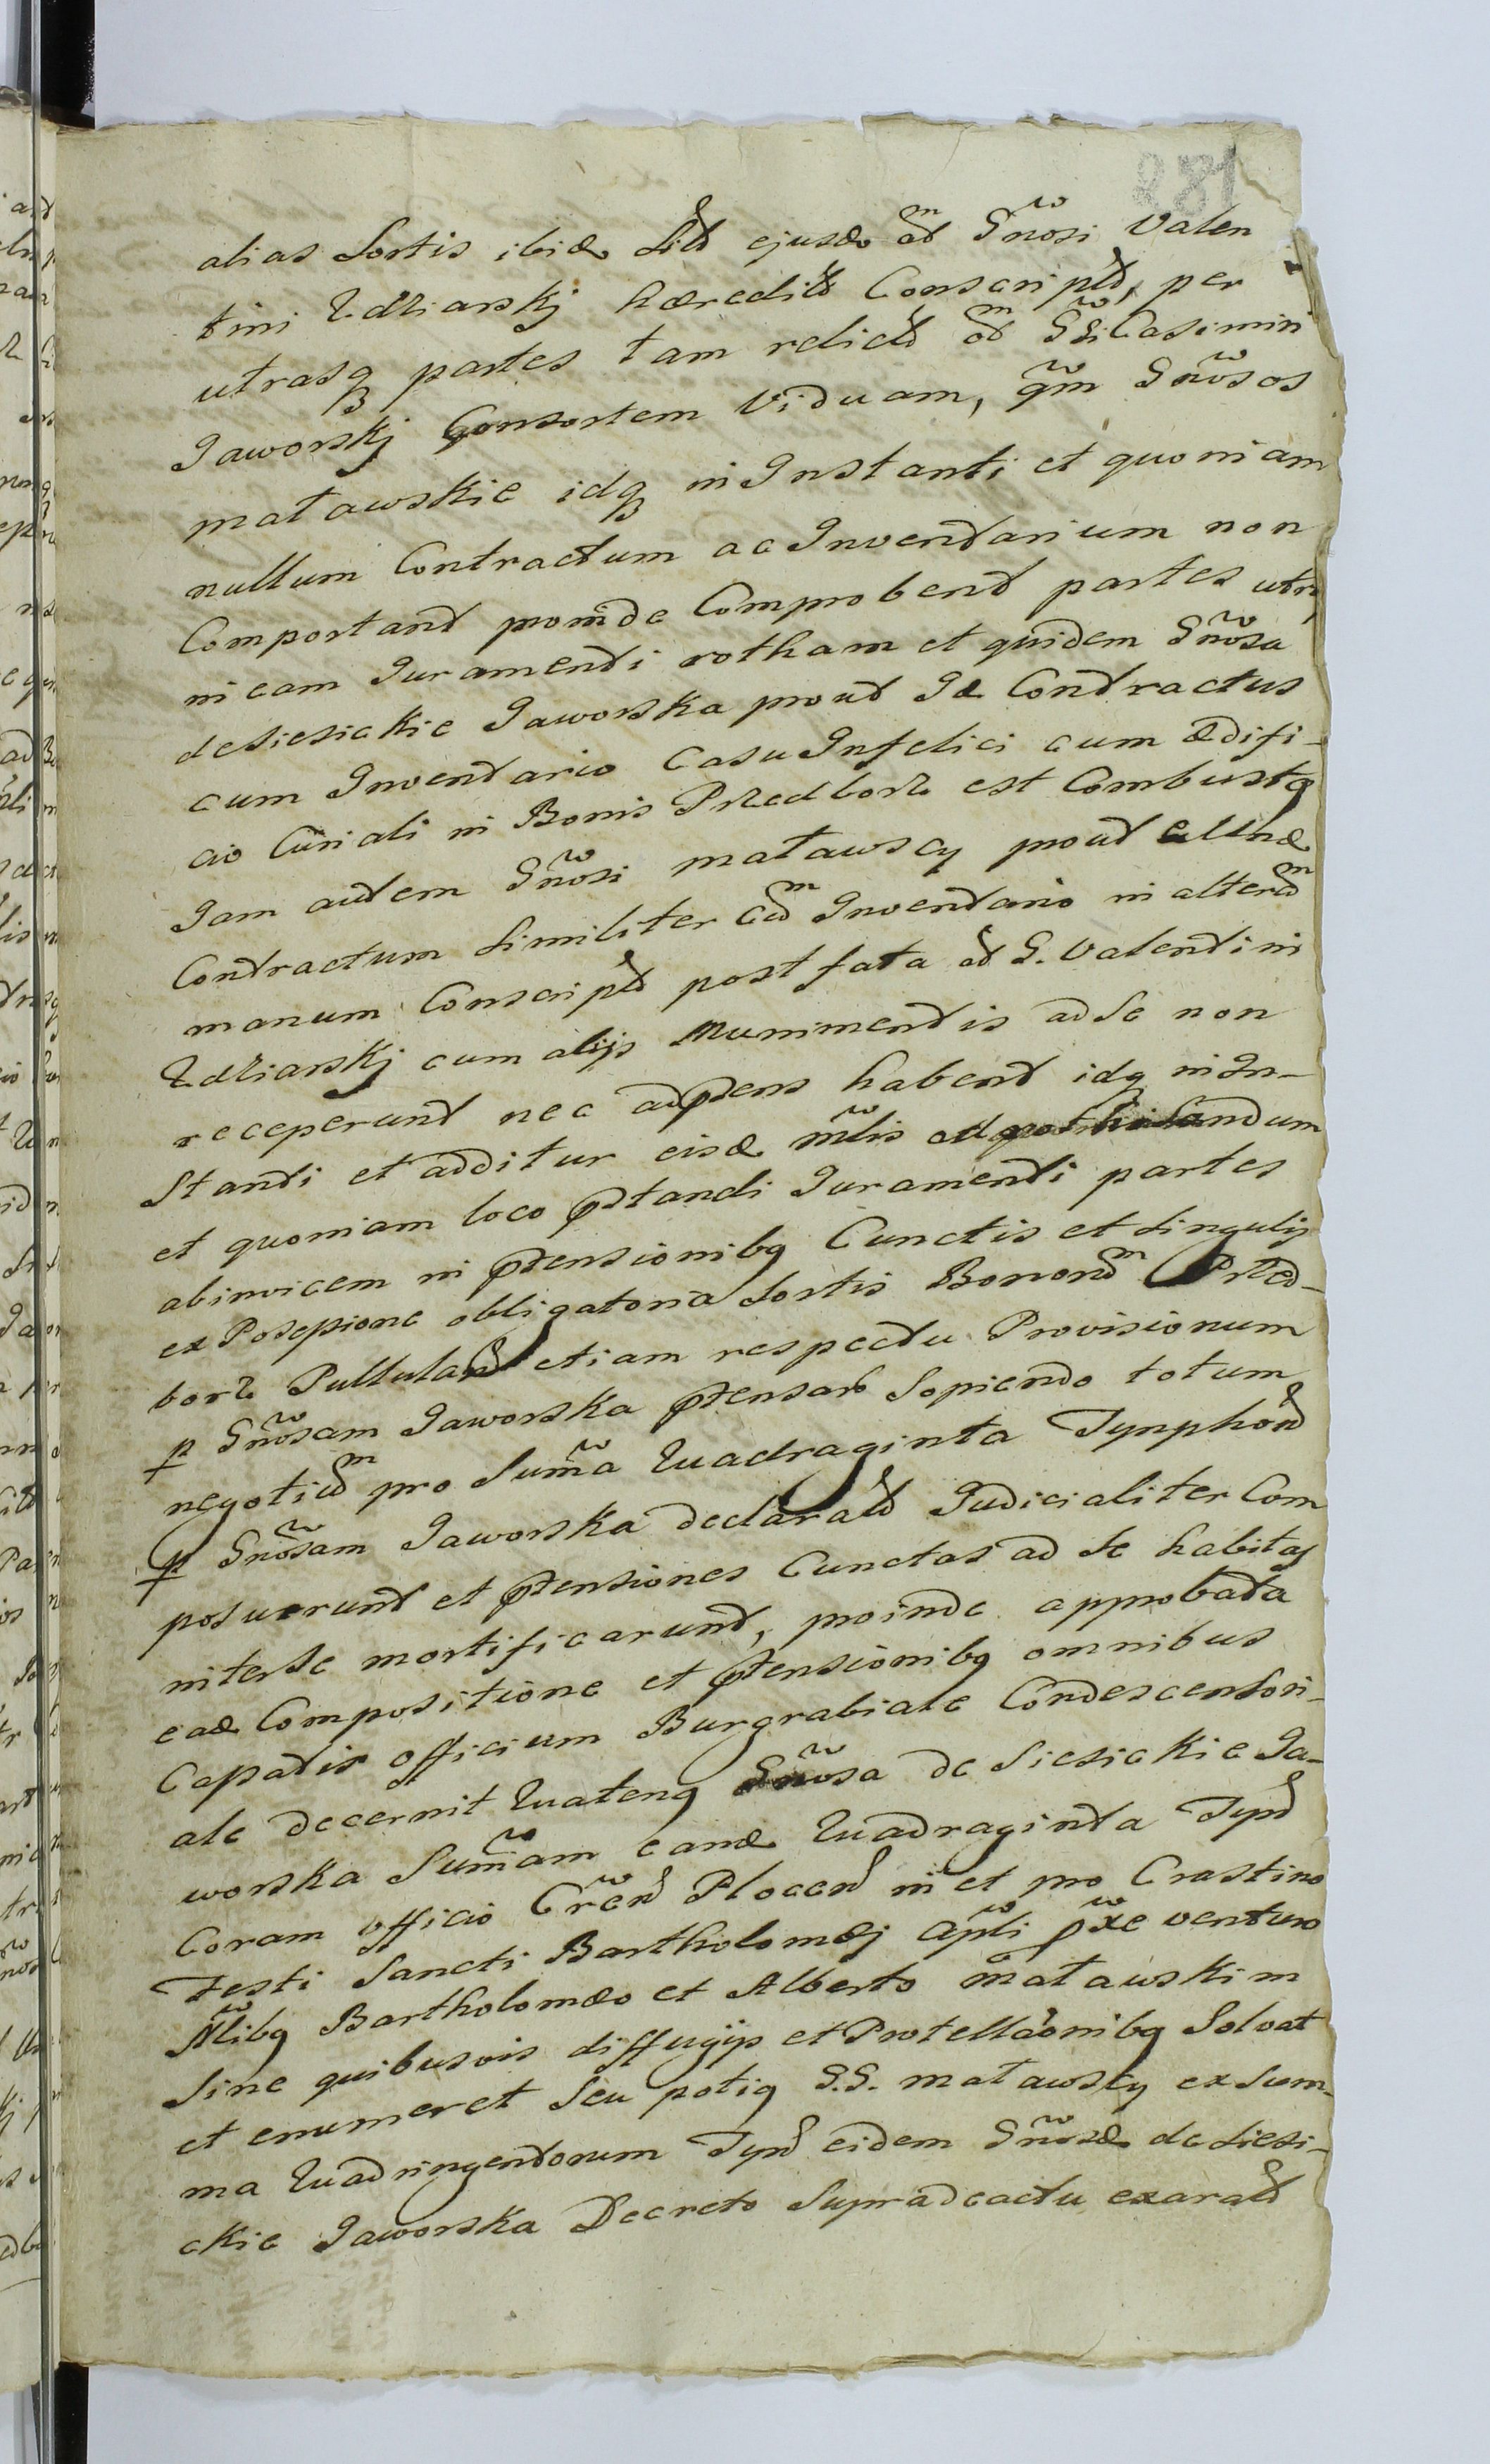 281
alias Sortis ibidẽ Sitt ejusdẽ ad Gnõsi Valen
tini Zdziarskj hæredits Conscriptt, per
utrasq partes tam relictt ad Gsi Casimiri
Jaworskj Consortem Viduam, qm Gnõsos
matawskie idq in Instanti et quoniam
nullum Contractum ac Inventarium non
Comportant proinde Comprobent partes utri
nicam Juramenti rotham et quidem Gnõsa
de Siesickie Jaworska prout Id Contractus
cum Inventario Casu Infelici cum ædifi-
cio Curiali in Bonis Przedborz est Combustq
Jam autem Gnõsi matawscy prout
Contractum Similiter cum Inventario in alteram
manum Conscriptt post fata ad G. Valentini
Zdziarskj cum alijs Munimentis ad Se non
receperunt nec ad psens habent idq in In-
Stanti et additur eisdẽ mlis ad
et quoniam loco pstandi Juramenti partes
abinvicem in ptensionibq Cunctis et Singulis
ex Possessione obligatoria Sortis Bonorum Przed-
borz Pullulant etiam respectu Provisionum
p Gnõsam Jaworska ptensarũ Sopiendo totum
negotium pro Suma Quadraginta Tynphon
p Gnõsam Jaworska declaratt Judicialiter Com
posuerunt et ptensiones Cunctas ad Se habitas
inter Se mortificarunt, proinde approbata
eadẽ Compositione et ptensionibq omnibus
Capatis officium Burgrabiale Condescensori-
ale decernit Quatenq Gnõsa de Siesickie Ja-
worska Sumam eandẽ Quadraginta Tynf
Coram officio Crẽn Plocen in et pro Crastino
Festi Sancti Bartholomæj Apli pxe venturo
Nlibq Bartholomæo et Alberto matawskim
Sine quibusvis diffugijs et Protellaõnibq Solvat
et enumeret Seu potiq G.G. matawscy ex Sum-
ma Quadringentorum Tynf eidem Gnõsæ de Siesi-
ckie Jaworska Decreto Supra de actu exaratt